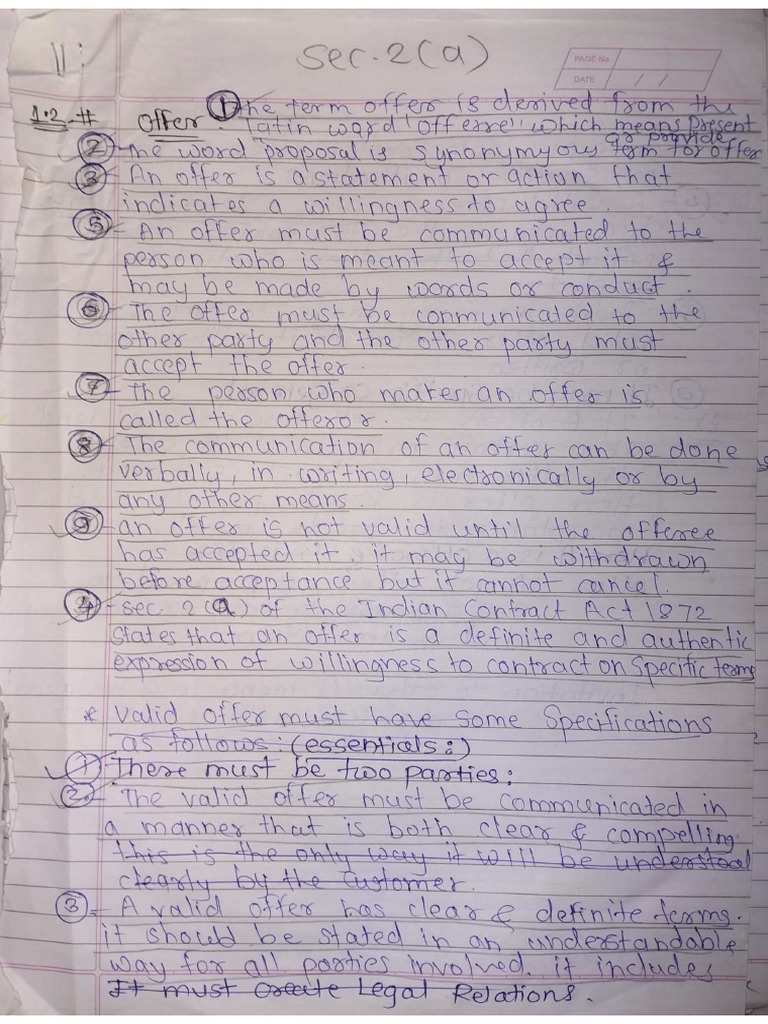 11:
sec. 2(a)
PAGE No.
DATE / /
1.2.#
Offer ① The term offer is derived from the
latin word "offerre" which means Present
or provide
② The word proposal is synonymyous term for offer
③ An offer is a statement or action that
indicates a willingness to agree.
⑤ - An offer must be communicated to the
person who is meant to accept it &
may be made by words or conduct.
⑥ - The offer must be conmunicated to the
other party and the other party must
accept the offer.
⑦ - The person who makes an offer is
called the offeror.
⑧ The communication of an offer can be done
verbally, in writing, electronically or by
any other means.
⑨ an offer is not valid until the offeree
has accepted it. it may be withdrawn
before acceptance but it cannot cancel.
④ - sec. 2(a) of the Indian Contract Act 1872
states that an offer is a definite and authentic
expression of willingness to contract on specific terms
* valid offer must have some specifications
as follows: (essentials:)
① There must be two parties:
② - The valid offer must be communicated in
a manner that is both clear & compelling.
this is the only way it will be understood
clearly by the customer.
③ - A valid offer has clear & definite terms.
it should be stated in an understandable
way for all parties involved. it includes
It must create Legal Relations.